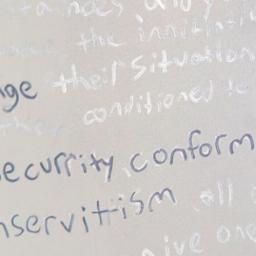 the innitiativ
nge their situation
conditioned to
ecurrity, conform
nservitism all
ive one